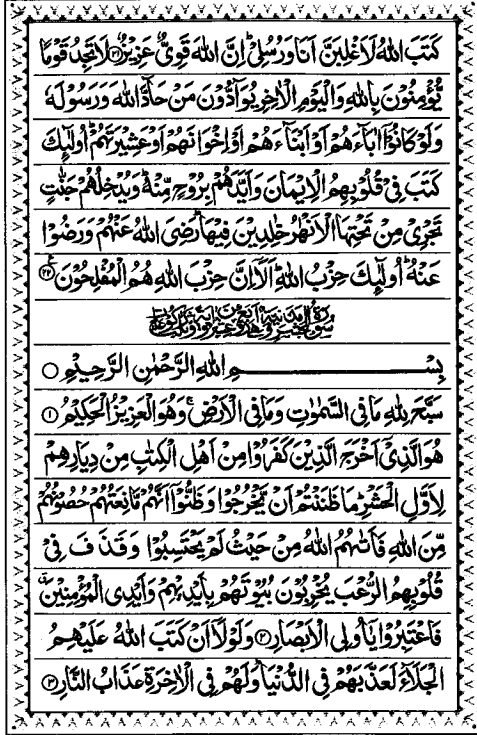 كَتَبَ اللّٰهُ لَاَغْلِبَنَّ اَنَا وَرُسُلِیْ ؕ اِنَّ اللّٰهَ قَوِیٌّ عَزِیْزٌ ﴿۲۱﴾ لَا تَجِدُ قَوْمًا
یُّؤْمِنُوْنَ بِاللّٰهِ وَالْیَوْمِ الْاٰخِرِ یُوَآدُّوْنَ مَنْ حَآدَّ اللّٰهَ وَرَسُوْلَهٗ
وَلَوْ كَانُوْۤا اٰبَآءَهُمْ اَوْ اَبْنَآءَهُمْ اَوْ اِخْوَانَهُمْ اَوْ عَشِیْرَتَهُمْ ؕ اُولٰٓىِٕكَ
كَتَبَ فِیْ قُلُوْبِهِمُ الْاِیْمَانَ وَاَیَّدَهُمْ بِرُوْحٍ مِّنْهُ ؕ وَیُدْخِلُهُمْ جَنّٰتٍ
تَجْرِیْ مِنْ تَحْتِهَا الْاَنْهٰرُ خٰلِدِیْنَ فِیْهَا ؕ رَضِیَ اللّٰهُ عَنْهُمْ وَرَضُوْا
عَنْهُ ؕ اُولٰٓىِٕكَ حِزْبُ اللّٰهِ ؕ اَلَاۤ اِنَّ حِزْبَ اللّٰهِ هُمُ الْمُفْلِحُوْنَ ﴿۲۲﴾
بِسْمِ اللّٰهِ الرَّحْمٰنِ الرَّحِیْمِ
سَبَّحَ لِلّٰهِ مَا فِی السَّمٰوٰتِ وَمَا فِی الْاَرْضِ ۚ وَهُوَ الْعَزِیْزُ الْحَكِیْمُ ﴿۱﴾
هُوَ الَّذِیْۤ اَخْرَجَ الَّذِیْنَ كَفَرُوْا مِنْ اَهْلِ الْكِتٰبِ مِنْ دِیَارِهِمْ
لِاَوَّلِ الْحَشْرِ ؕ مَا ظَنَنْتُمْ اَنْ یَّخْرُجُوْا وَظَنُّوْۤا اَنَّهُمْ مَّانِعَتُهُمْ حُصُوْنُهُمْ
مِّنَ اللّٰهِ فَاَتٰىهُمُ اللّٰهُ مِنْ حَیْثُ لَمْ یَحْتَسِبُوْا وَقَذَفَ فِیْ
قُلُوْبِهِمُ الرُّعْبَ یُخْرِبُوْنَ بُیُوْتَهُمْ بِاَیْدِیْهِمْ وَاَیْدِی الْمُؤْمِنِیْنَ ۗ
فَاعْتَبِرُوْا یٰۤاُولِی الْاَبْصَارِ ﴿۲﴾ وَلَوْلَاۤ اَنْ كَتَبَ اللّٰهُ عَلَیْهِمُ
الْجَلَآءَ لَعَذَّبَهُمْ فِی الدُّنْیَا ؕ وَلَهُمْ فِی الْاٰخِرَةِ عَذَابُ النَّارِ ﴿۳﴾